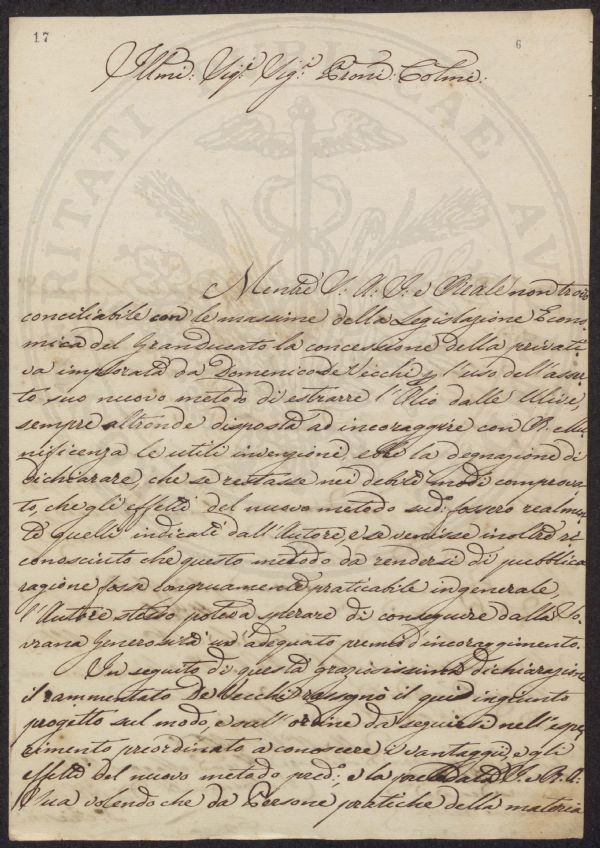 17
6
Illmi: Sigri Sigri Proni: Colmi:
Mentre S. A. I. e Reale non trovò
conciliabile con le massime della Legislazione Econo
mica del Granducato la concessione della privati
va implorata da Domenico de Vecchi p l'uso dell'asser
to suo nuovo metodo di estrarre l'Olio dalle Ulive,
sempre altronde disposta ad incoraggire con R. Mu
nificenza le utili invenzioni, ebbe la degnazione di
dichiarare, che se restasse nei debiti modi comprova
to, che gli effetti del nuovo metodo sud: fossero realmen
te quelli indicati dall'Autore, e se venisse inoltre ri
conosciuto che questo metodo da rendersi di pubblica
ragione fosse congruamente praticabile in generale,
l'Autore stesso poteva sperare di conseguire dalla So
vrana Generosità un'adeguato premio d'incoraggimento.
In seguito di questa graziosissima dichiarazione
il rammentato De Vecchi rassegnò il qui ingiunto
progetto sul modo e sull'ordine da seguirsi nell'espe
rimento preordinato a conoscere i vantaggi, e gli
effetti del nuovo metodo pred:, e la S. e R. A.
Sua volendo che da Persone pratiche della materia